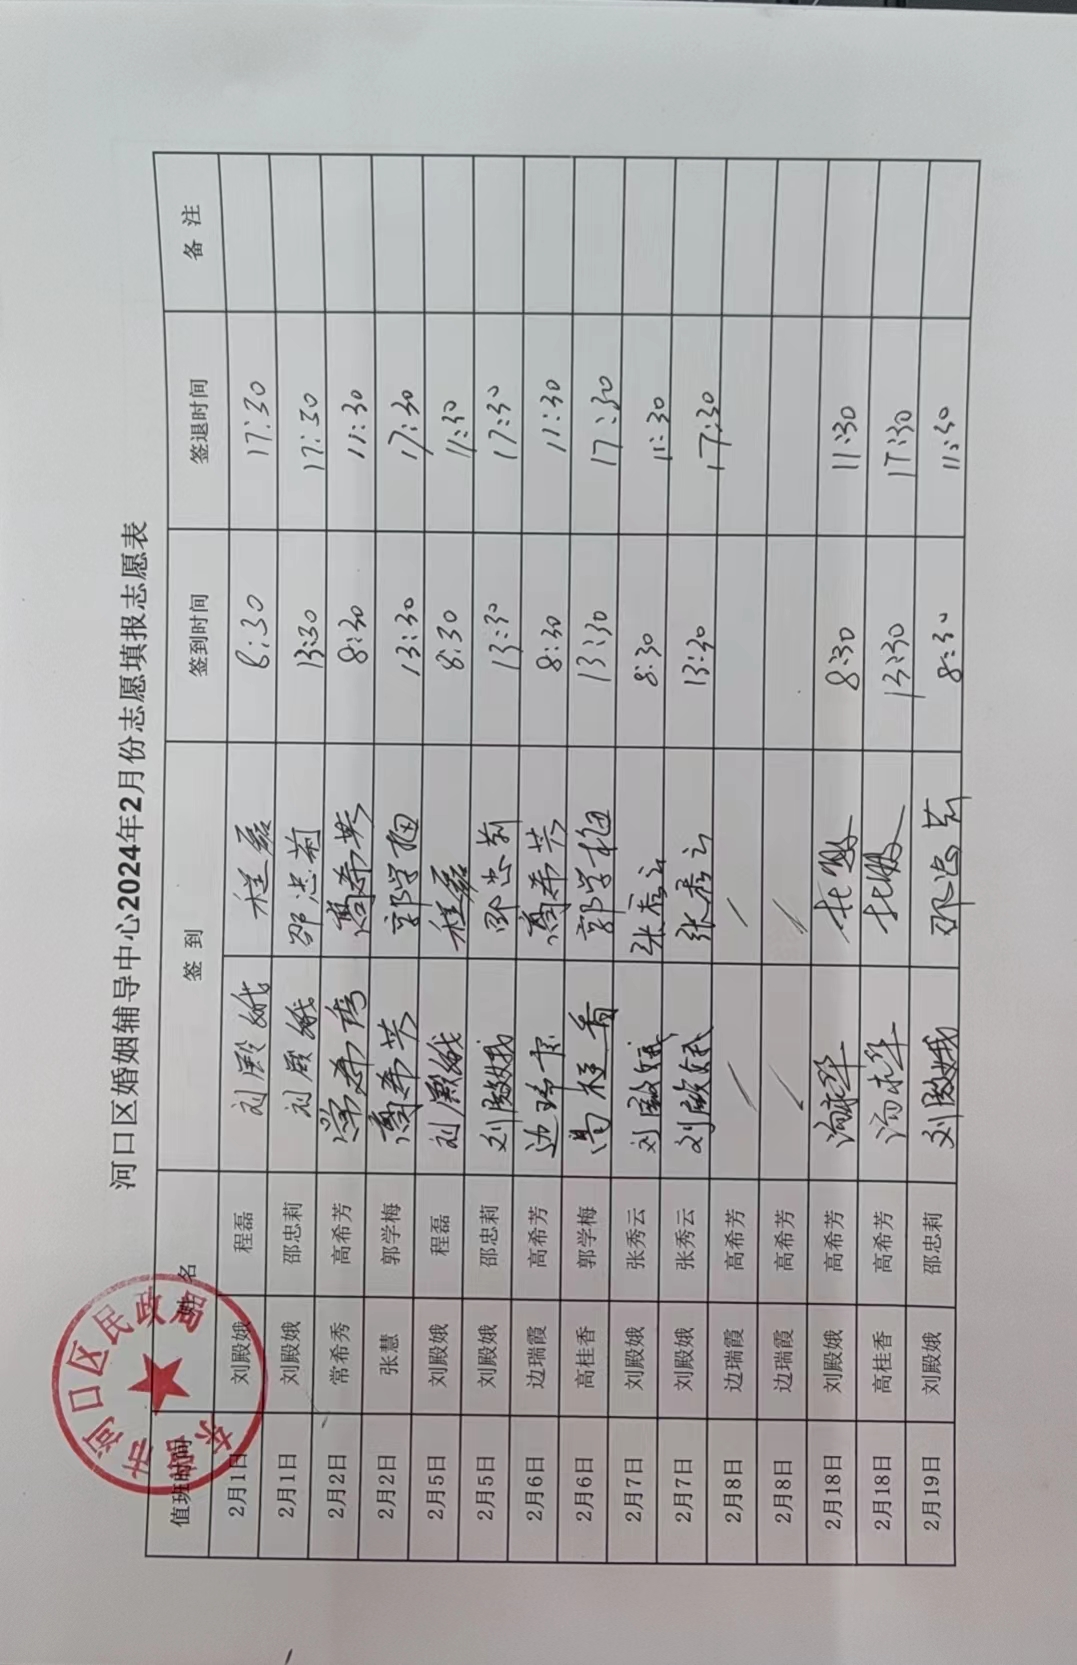 河口区婚姻辅导中心2024年2月份志愿填报志愿表
值班时间 姓名 签到 签到时间 签退时间 备注
2月1日 刘殿娥 程磊 刘殿娥 程磊 8:30 17:30
2月1日 刘殿娥 邵忠莉 刘殿娥 邵忠莉 13:30 17:30
2月2日 常希秀 高希芳 常希秀 高希芳 8:30 11:30
2月2日 张慧 郭学梅 高希芳 郭学梅 13:30 17:30
2月5日 刘殿娥 程磊 刘殿娥 程磊 8:30 11:30
2月5日 刘殿娥 邵忠莉 刘殿娥 邵忠莉 13:30 17:30
2月6日 边瑞霞 高希芳 边瑞霞 高希芳 8:30 11:30
2月6日 高桂香 郭学梅 高桂香 郭学梅 13:30 17:30
2月7日 刘殿娥 张秀云 刘殿娥 张秀云 8:30 11:30
2月7日 刘殿娥 张秀云 刘殿娥 张秀云 13:30 17:30
2月8日 边瑞霞 高希芳
2月8日 边瑞霞 高希芳
2月18日 刘殿娥 高希芳 8:30 11:30
2月18日 高桂香 高希芳 13:30 17:30
2月19日 刘殿娥 邵忠莉 刘殿娥 邵忠莉 8:30 11:30
东营市河口区民政局